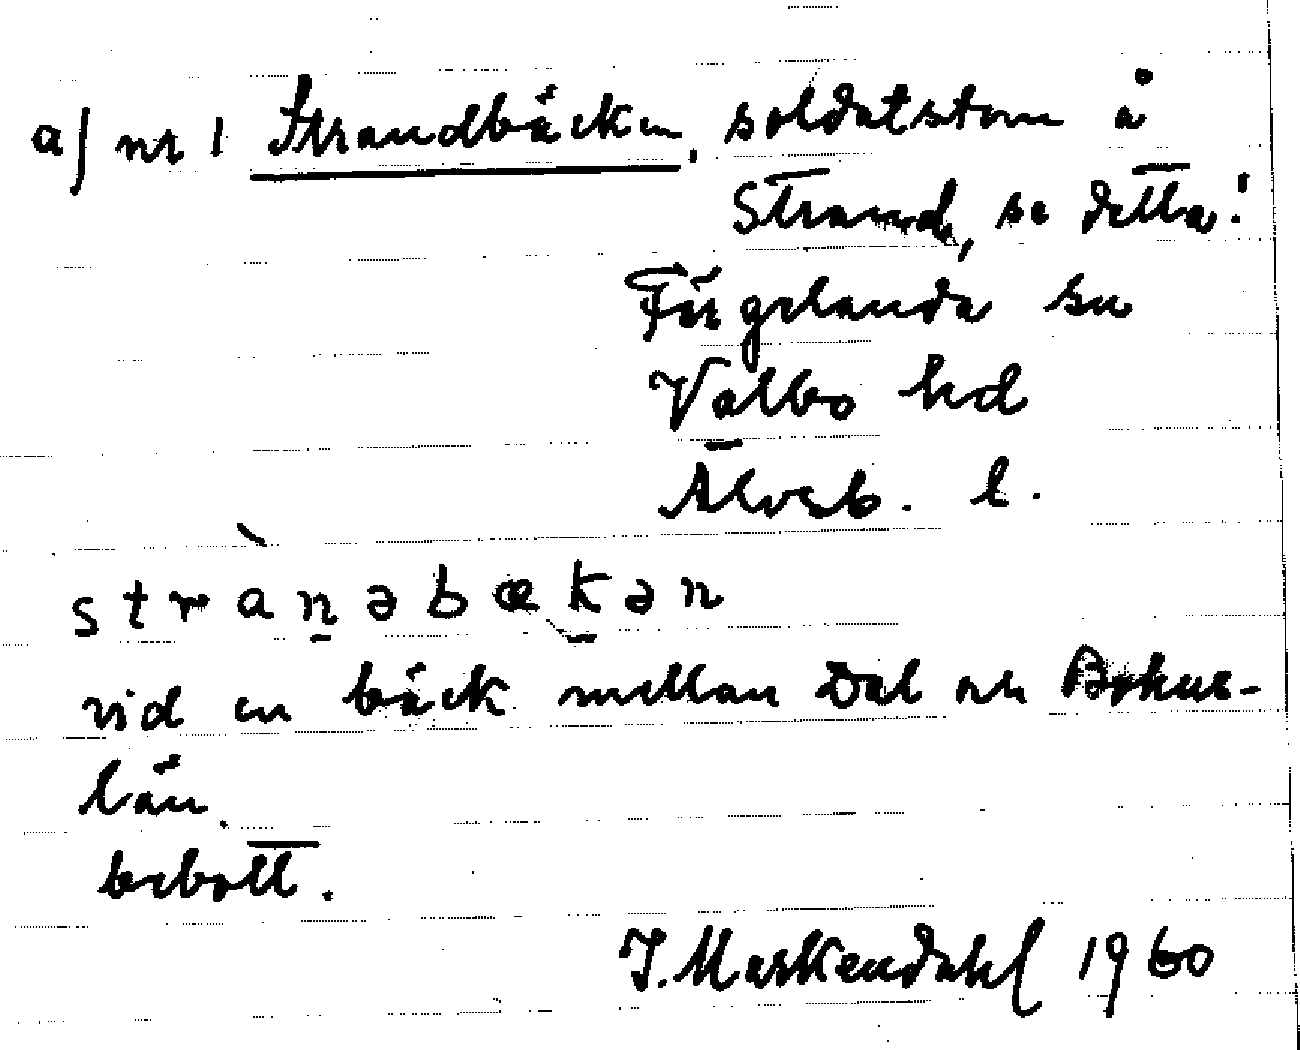 a) nr 1 Strandbäcken, soldatstom å
Strand, se detta!
Färgelanda sn
Valbo hd
Älvsb. l.
strànəbækən
vid en bäck mellan Dal och Bohus-
län.
bebott.
J. Markendahl 1960